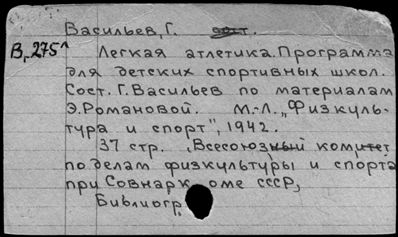 Васильев, Г. сост.
В,275^
Легкая атлетика. Программа
для детских спортивных школ.
Сост. Г. Васильев по материалам
Э. Романовой. М.-Л. „Физкуль-
тура и спорт", 1942.
37 стр. , Всесоюзный комитет
по делам физкультуры и спорта
при Совнаркоме СССР,
Библиогр.